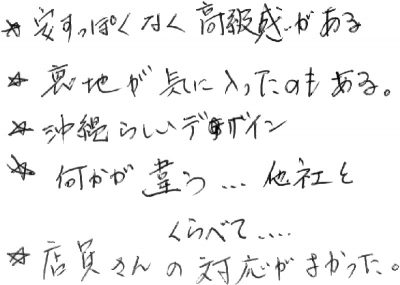 ☆ 安すっぽくなく高級感がある
☆ 裏地が気に入ったのもある。
☆ 沖縄らしいデザイン
☆ 何かが違う…他社と
くらべて‥‥
☆ 店員さんの対応がよかった。